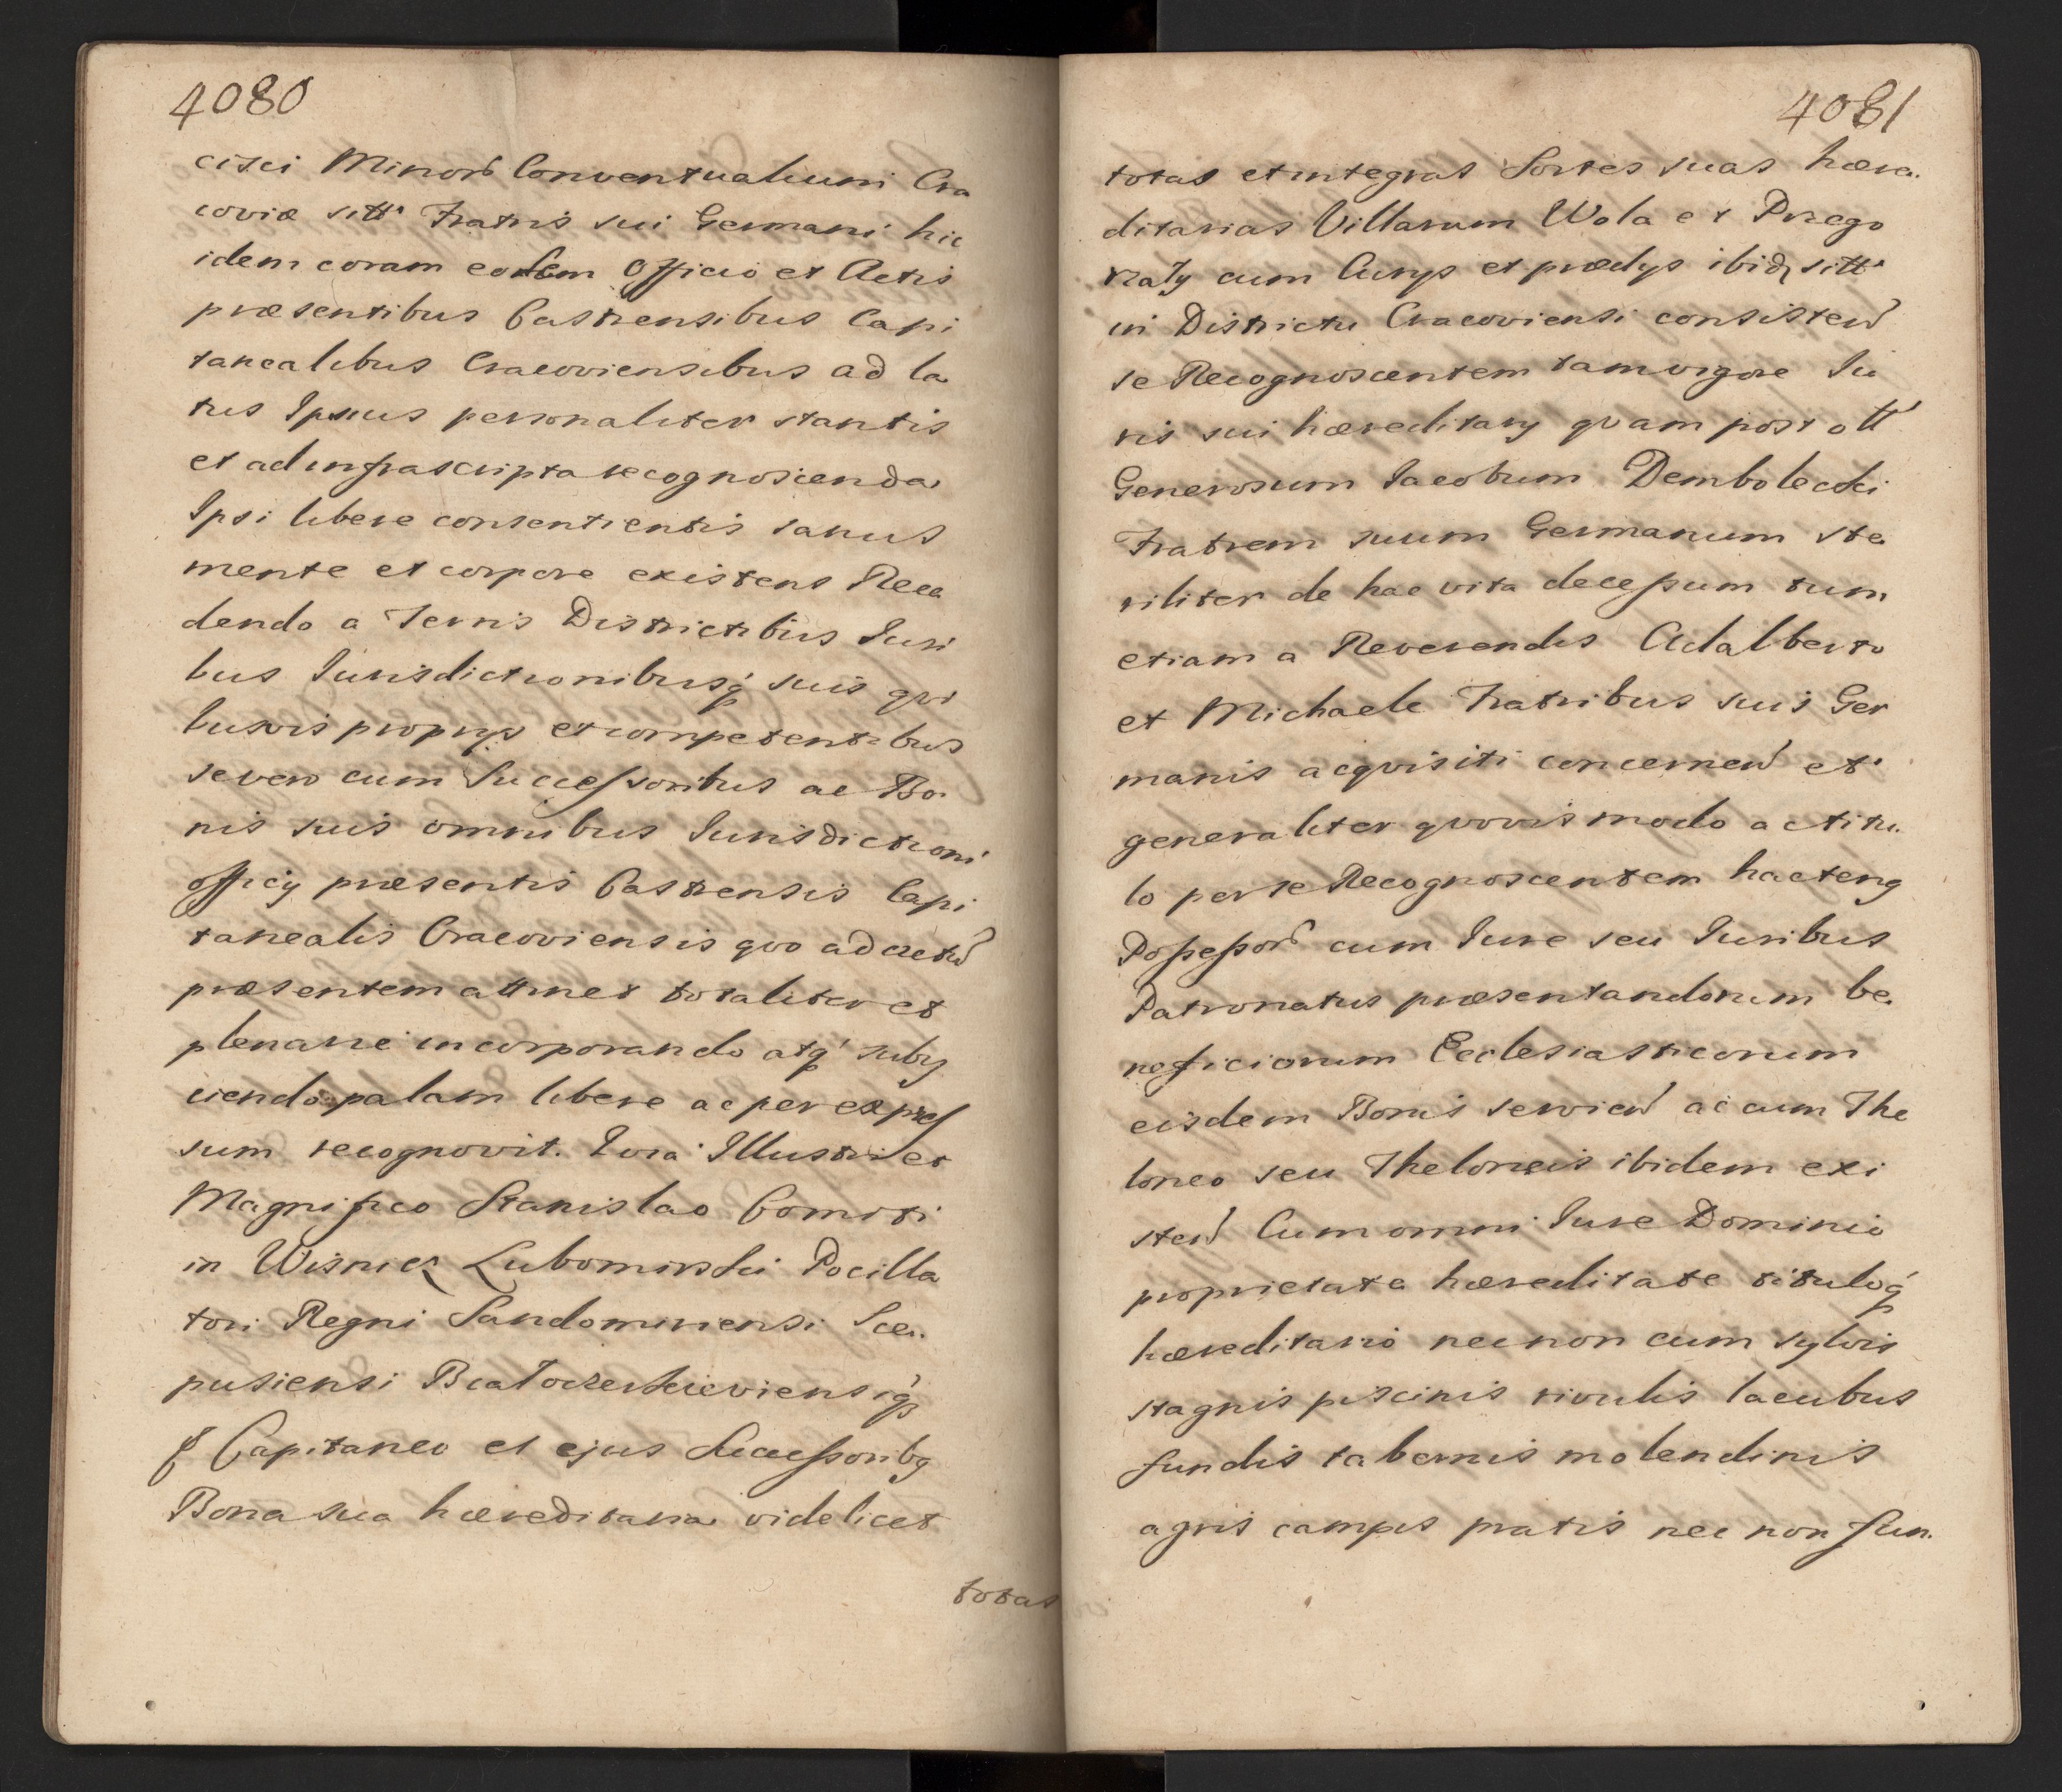 4080
cisci Minor Conventualium Cra
coviæ sitt Fratris sui Germani hic
idem coram eodem Officio et Actis
præsentibus Castrensibus Capi
tanealibus Cracoviensibus ad la
tus Ipsius personaliter stantis
et ad infrascripta recognoscenda
Ipsi libere consentientis sanus
mente et corpore existens Rece
dendo a Terris Districtibus Juri
bus Jurisdictionibusq suis qvi
busvis proprys et competentibus
se vero cum Successoribus ac Bo
nis suis omnibus Jurisdictioni
officy præsentis Castrensis Capi
tanealis Cracoviensis qvo ad actu
præsentem attinet totaliter et
plenarie incorporando atq suby
ciendo palam libere ac per expres
sum recognovit. Quia Illustri et
Magnifico Stanislao Comiti
in Wisnicz Lubomirski Pocilla
tori Regni Sandomiriensi Sce
pusiensi Białocerkieviensiq
Capitaneo et ejus Successoribq
Bona sua hæreditaria videlicet
totas
4081
totas et integras Sortes suas hære
ditarias Villarum Wola et Przego
rzały cum Curys et prædys ibid sitt
in Districtu Cracoviensi consisten
se Recognoscentem tam vigore Ju
ris sui hæreditary qvam post ott
Generosum Jacobum Dembolecki
Fratrem suum Germanum ste
riliter de hac vita decessum tum
etiam a Reverendis Adalberto
et Michaele Fratribus suis Ger
manis acqvisiti concernen et
generaliter qvovis modo ac titu
lo per se Recognoscentem hacteng
Possessor cum Jure seu Juribus
Patronatus præsentandorum be
neficiorum Ecclesiasticorum
eisdem Bonis servien ac cum The
loneo seu Theloneis ibidem exi
sten Cum omni Jure Dominio
proprietate hæreditate tituloq
hæreditario nec non cum sylvis
stagnis piscinis rivulis lacubus
fundis tabernis molendinis
agris campis pratis nec non fun